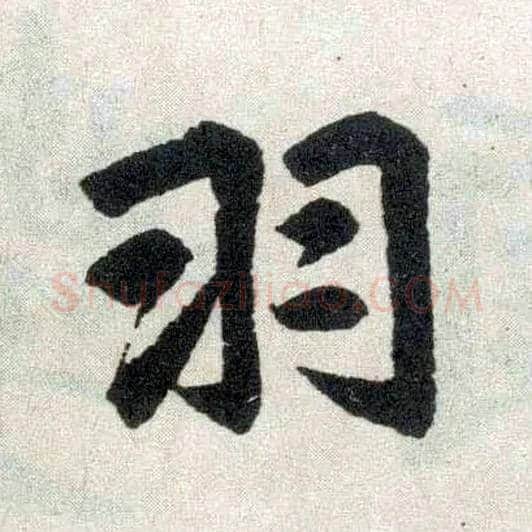 羽
Shufaziliao.COM